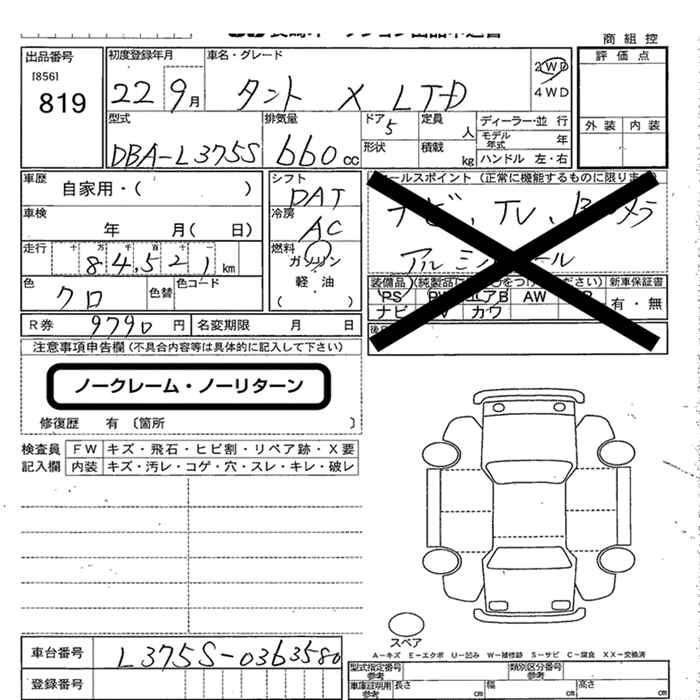 商 組 控
出品番号
[856]
819
初度登録年月
22 9月
車名・グレード
タント X LTD
2WD
4WD
評 価 点
外 装 内 装
型式
DBA-L375S
排気量
660cc
ドア 5
形状
定員 人
積載 kg
ディーラー・並 行
モデル年式 年
ハンドル 左・右
車歴
自家用・( )
車検
年 月( 日)
走行
十 万 千 百 十 一
84,521 km
色
クロ
色替
色コード
シフト
DAT
冷房
AC
燃料
ガソリン
軽 油
( )
セールスポイント (正常に機能するものに限ります
ナビ、TV、Bカメラ
アルミホイール
装備品
新車保証書
有・無
PS
エアB AW
ナビ
カワ
R券 9790 円
名変期限 月 日
注意事項申告欄 (不具合内容等は具体的に記入して下さい)
ノークレーム・ノーリターン
修復歴 有 〔箇所 〕
検査員 FW キズ・飛石・ヒビ割・リペア跡・X要
記入欄 内装 キズ・汚レ・コゲ・穴・スレ・キレ・破レ
スペア
A-キズ E-エクボ U-凹み W-補修跡 S-サビ C-腐食 XX-交換済
車台番号 L375S-0363580
登録番号
型式指定番号 参考
類別区分番号 参考
車庫証明用 参考
長さ cm 幅 cm 高さ cm